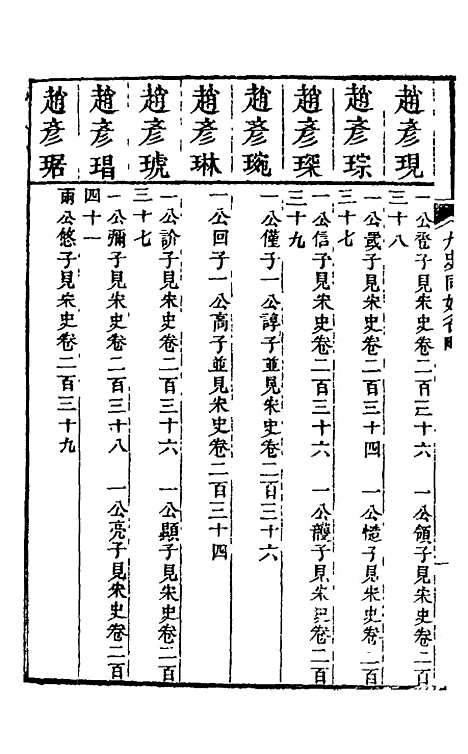 九史同姓名略
趙彥現
一公登子見宋史卷二百三十六 一公領子見宋史卷二百
三十八
趙彥琮
一公武子見宋史卷二百三十四 一公慥子見宋史卷二百
三十七
趙彥琛
一公信子見宋史卷二百三十六 一公護子見宋史卷二百
三十九
趙彥琬
一公僅子一公諄子並見宋史卷二百三十六
趙彥琳
一公回子一公高子並見宋史卷二百三十四
趙彥琥
一公診子見宋史卷二百三十六 一公顯子見宋史卷二百
三十七
趙彥琩
一公彌子見宋史卷二百三十八 一公亮子見宋史卷二百
四十一
趙彥琚
兩公悠子見宋史卷二百三十九